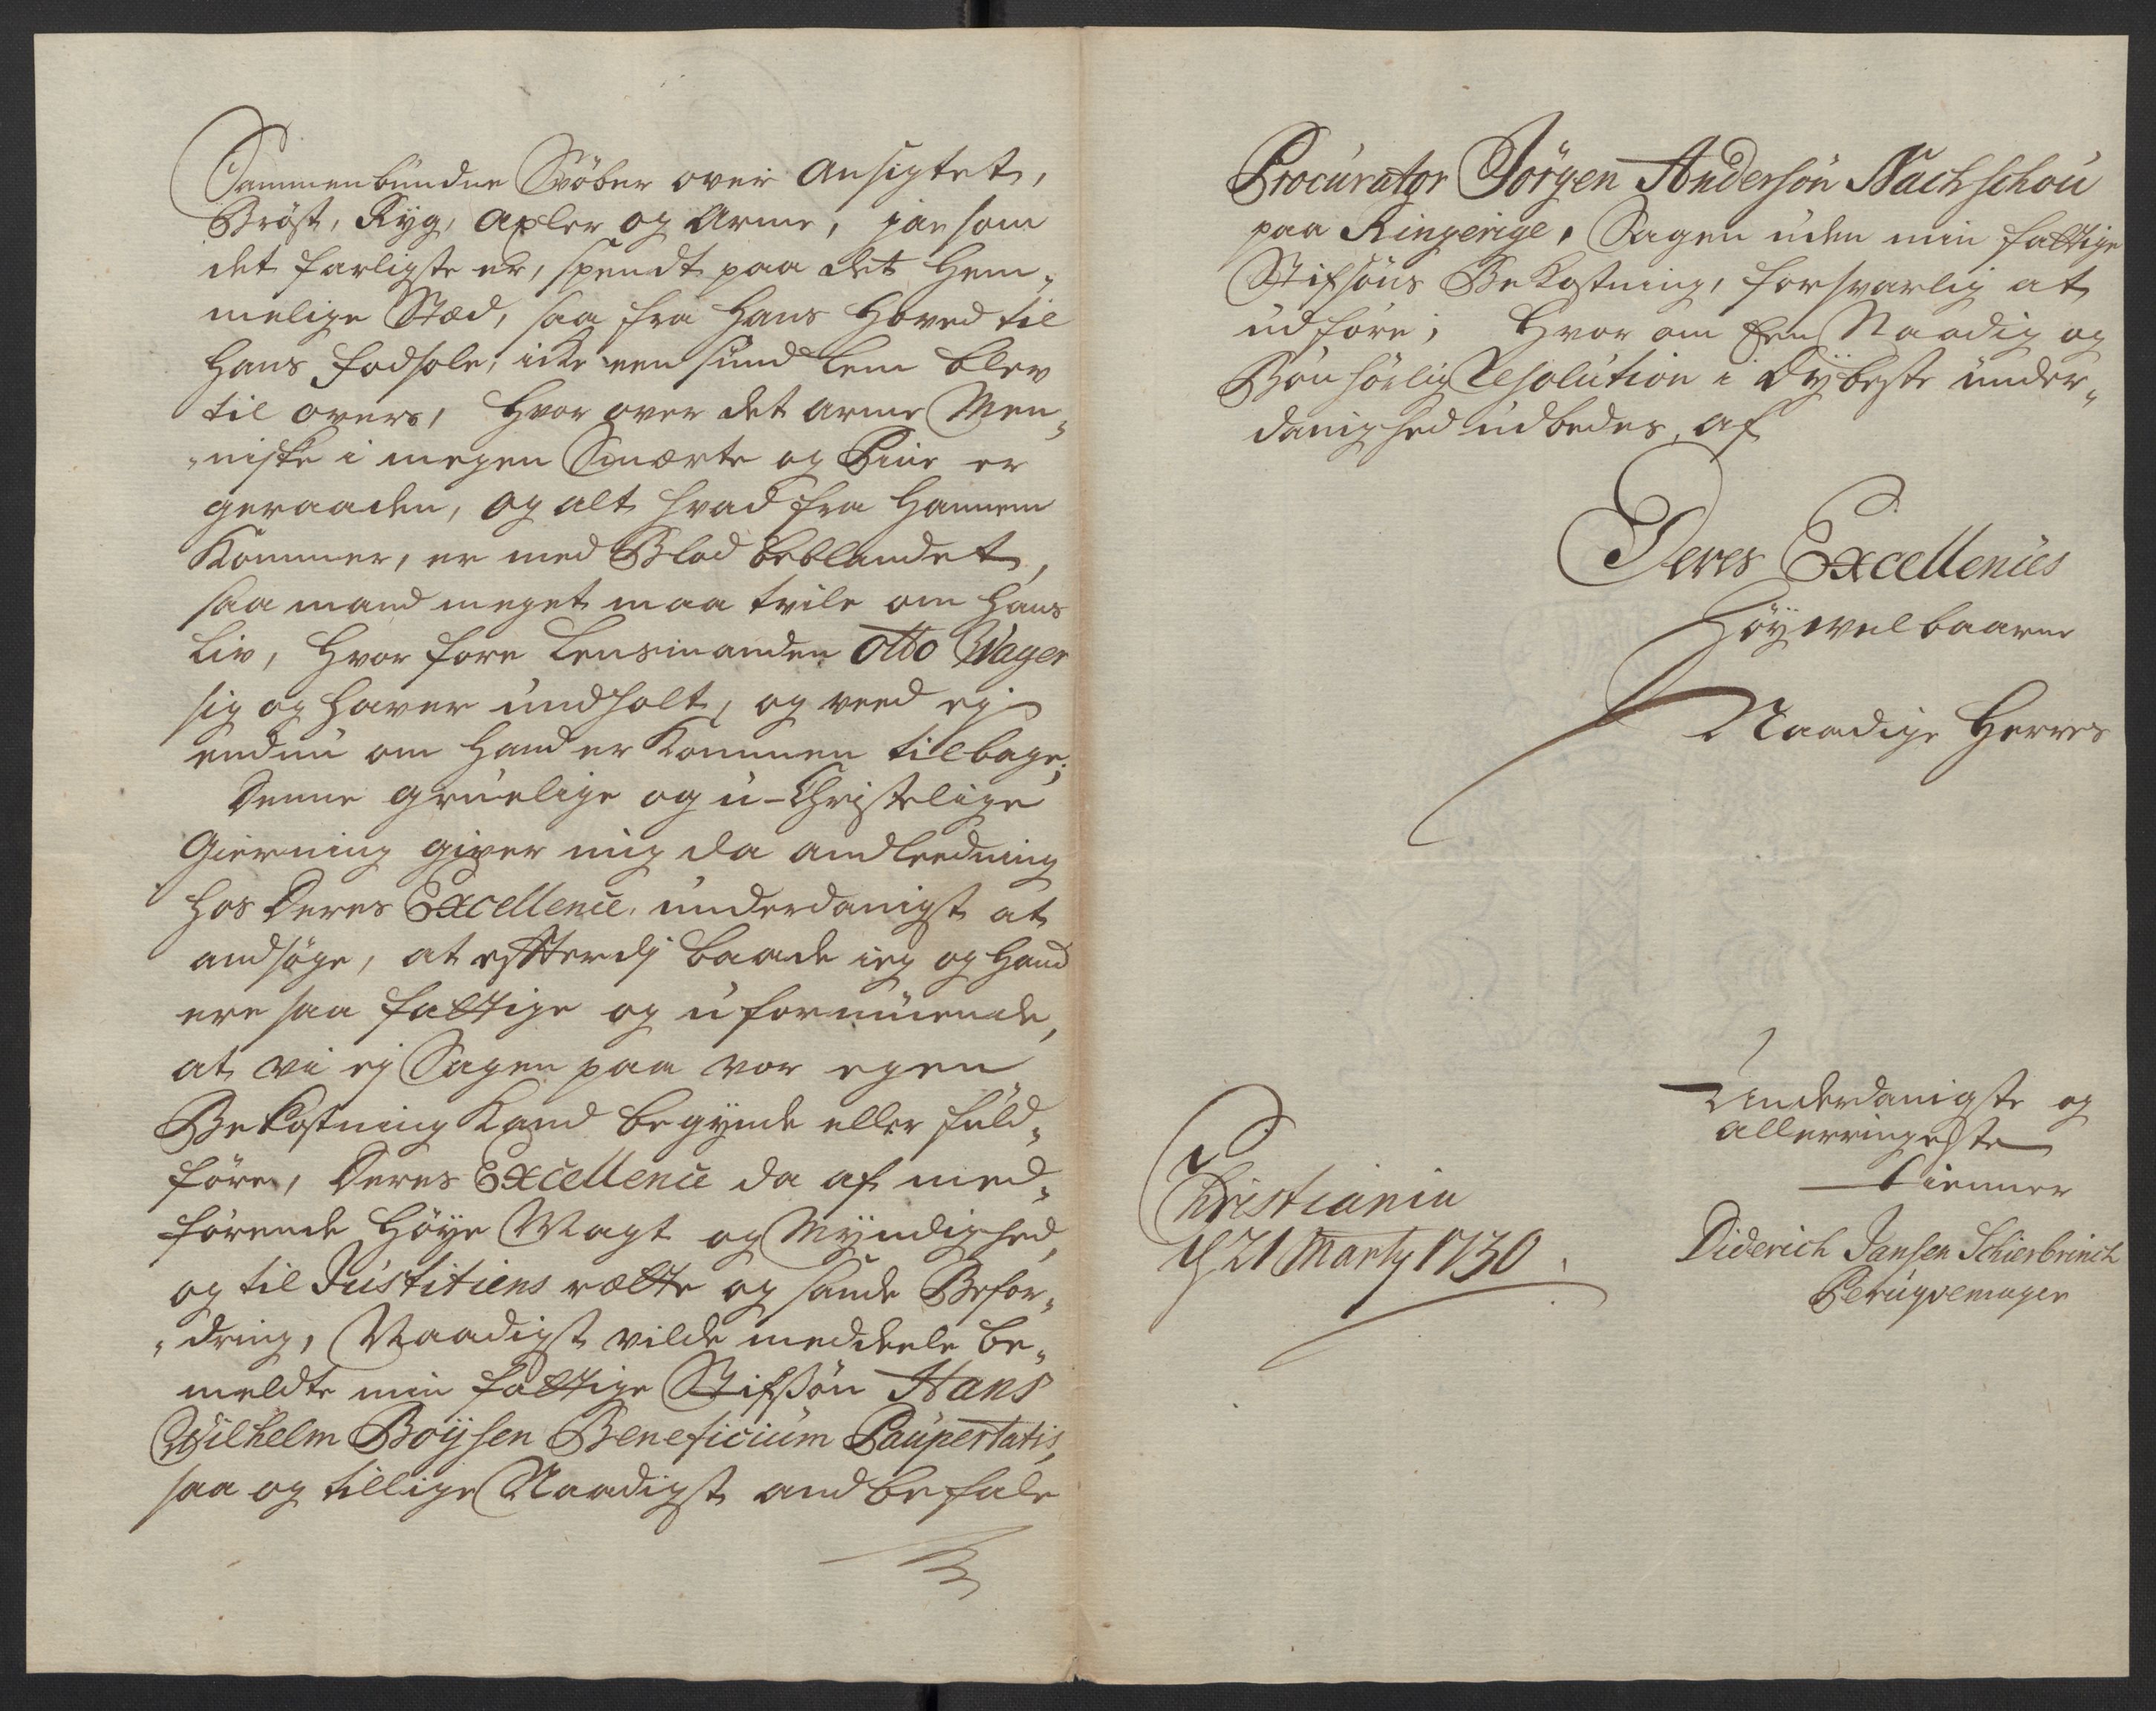 Sammenbundne Svöber over Ansigtet,
Bröst, Ryg, Axler og Arme, jae som
det farligste er, spendt paa det hem¬
melige Stæd, saa fra hans Hoved til
hans fodsole, icke een sund Lem blev
til overs, Hvor over det arme Men¬
niske i megen Smerte og Piine er
geraaden, og alt hvad fra hannem
Kommer, er med Blod beblandet,
saa mand meget maa tvile om hans
Liv, Hvor fore Lensmanden Otto Wager
sig og haver undholt, og veed ej
endnu om hand er Kommen tilbage;
Denne gruelige og u-Christelige
Gierning giver mig da andleedning
hos Deres Excellence underdanigst at
andsøge, at efftterdj baade ieg og hand
ere saa fattige og uformuende,
at vi ej Sagen paa vor egen
Bekostning Kand begynde eller fuld¬
føre, Deres Excellence da af med¬
førende Høye Magt og Myndighed,
og til Justitiens rætte og sande Befor¬
dring, Naadigst vilde meddeele be¬
meldte min fattige Stifsøn Hans
Wilhelm Boysen Beneficium Paupertatis,
saa og tillige Naadigst andbefale
Procurator Jörgen Andersön Nachschou
paa Ringerige, Sagen uden min fattige
Stifsöns Bekostning, forsvarlig at
udföre; Hvor om Een Naadig og
Bönhörlig Resolution i dybeste under¬
danighed udbedes, af
Deres Excellences
Höyvelbaarne
Naadige Herres
Underdanigste og
allerringeste
tienner
Christiania
d 21 Marty 1730.
Diderich Jansen Schierbrinch
Peruqvemager